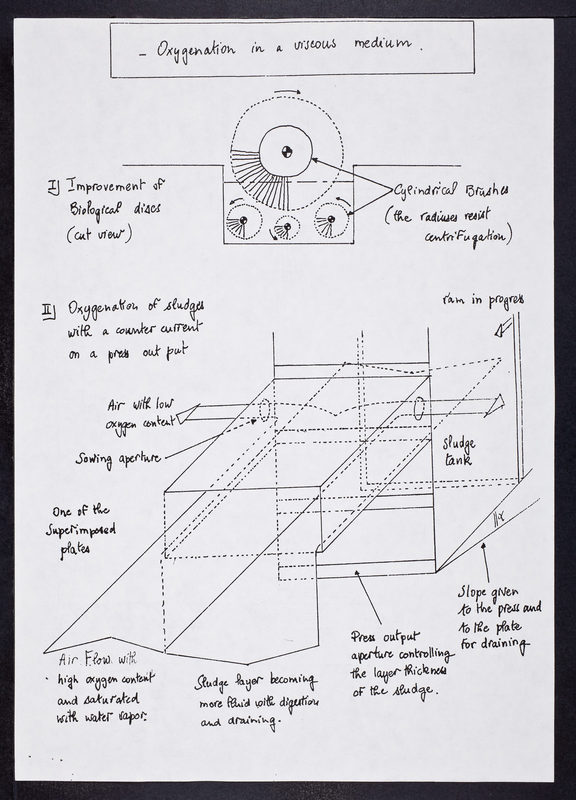 - Oxygenation in a viscous medium.
I] Improvement of
Biological discs
(cut view)
Cylindrical Brushes
(the radiuses resist
centrifugation)
II] Oxygenation of sludges
with a counter current
on a press out put
ram in progress
Air with low
oxygen content
Sowing aperture
sludge
tank
One of the
Superimposed
plates
α
Slope given
to the press and
to the plate
for draining
Press output
aperture controlling
the layer thickness
of the sludge.
Air Flow with
high oxygen content
and saturated
with water vapor.
Sludge layer becoming
more fluid with digestion
and draining.